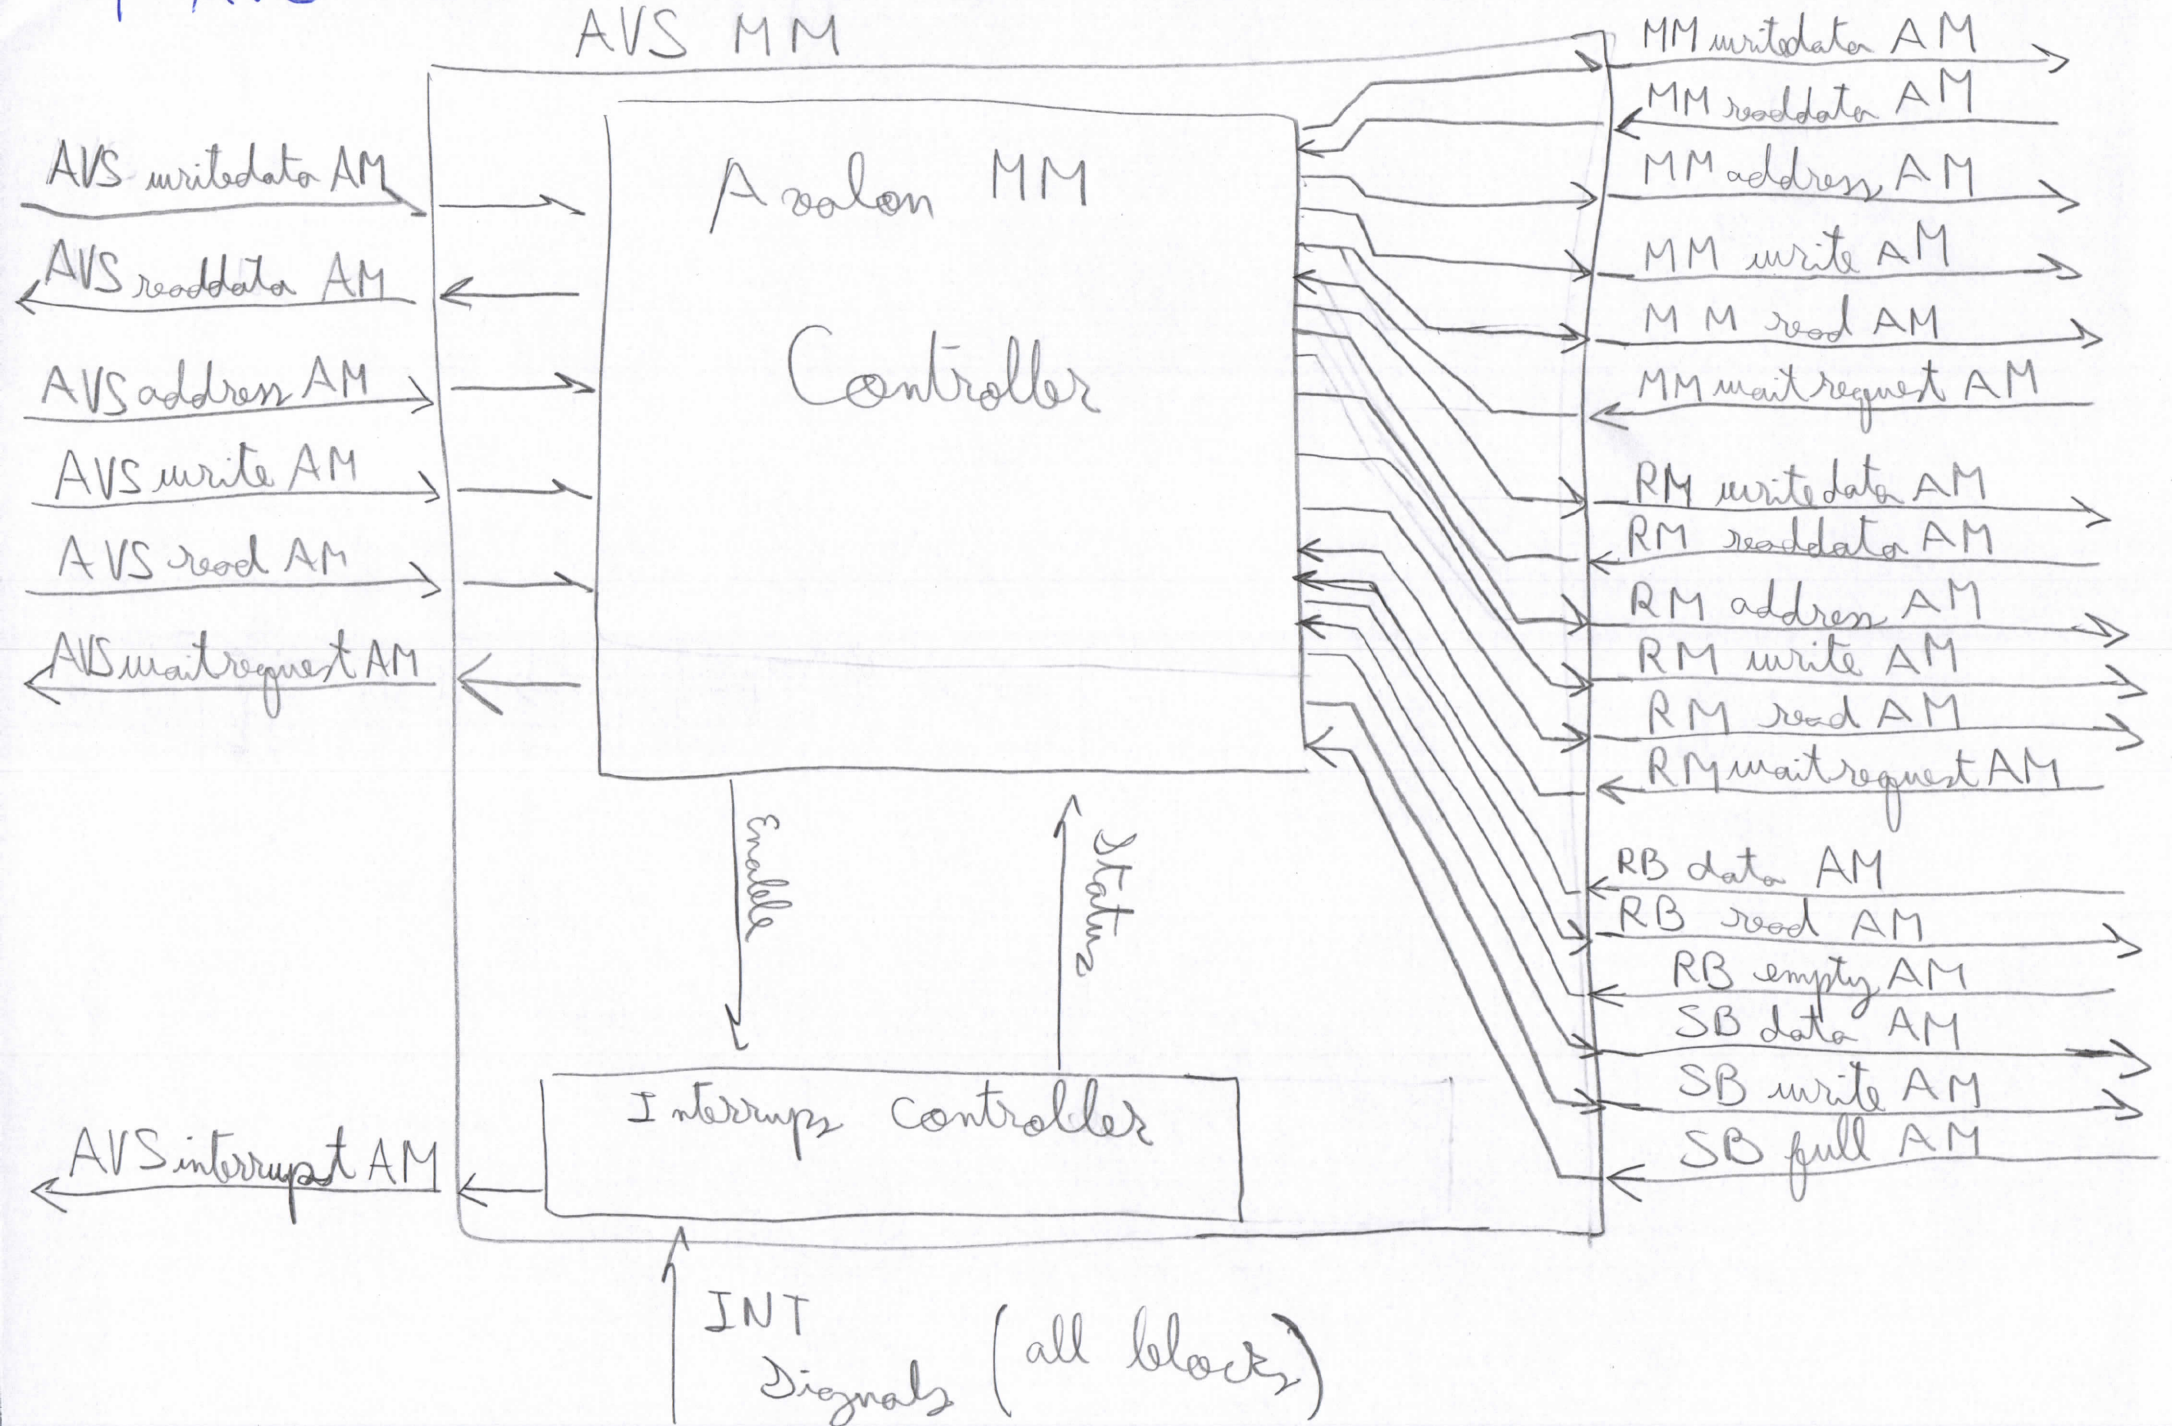 AVS MM
AVS writedata AM
AVS readdata AM
AVS address AM
AVS write AM
AVS read AM
AVS waitrequest AM
AVS interrupt AM
Avalon MM
Controller
Enable
Status
Interrups controller
INT
Signals (all blocks)
MM writedata AM
MM readdata AM
MM address AM
MM write AM
MM read AM
MM waitrequest AM
RM writedata AM
RM readdata AM
RM address AM
RM write AM
RM read AM
RM waitrequest AM
RB data AM
RB read AM
RB empty AM
SB data AM
SB write AM
SB full AM